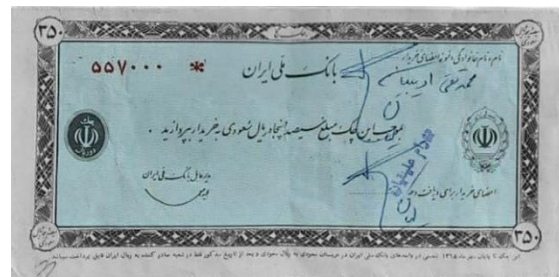 ۳۵۰
نام، نام خانوادگی و نمونه امضای خریدار
محمد تقی ادیبیان
بانک ملی ایران
* ۵۵۷۰۰۰
بموجب این چک مبلغ سیصد و پنجاه ریال سعودی به خریدار بپردازید .
چک
در وجه
مدیر عامل بانک ملی ایران
امضای خریدار برای دریافت وجه
۳۵۰
۳۵۰
این چک تا پایان مهر ماه ۱۳۶۵ شمسی در واحدهای بانک ملی ایران در عربستان سعودی به ریال سعودی و بعد از تاریخ مذکور فقط در شعبه صادر کننده به ریال ایران قابل پرداخت میباشد